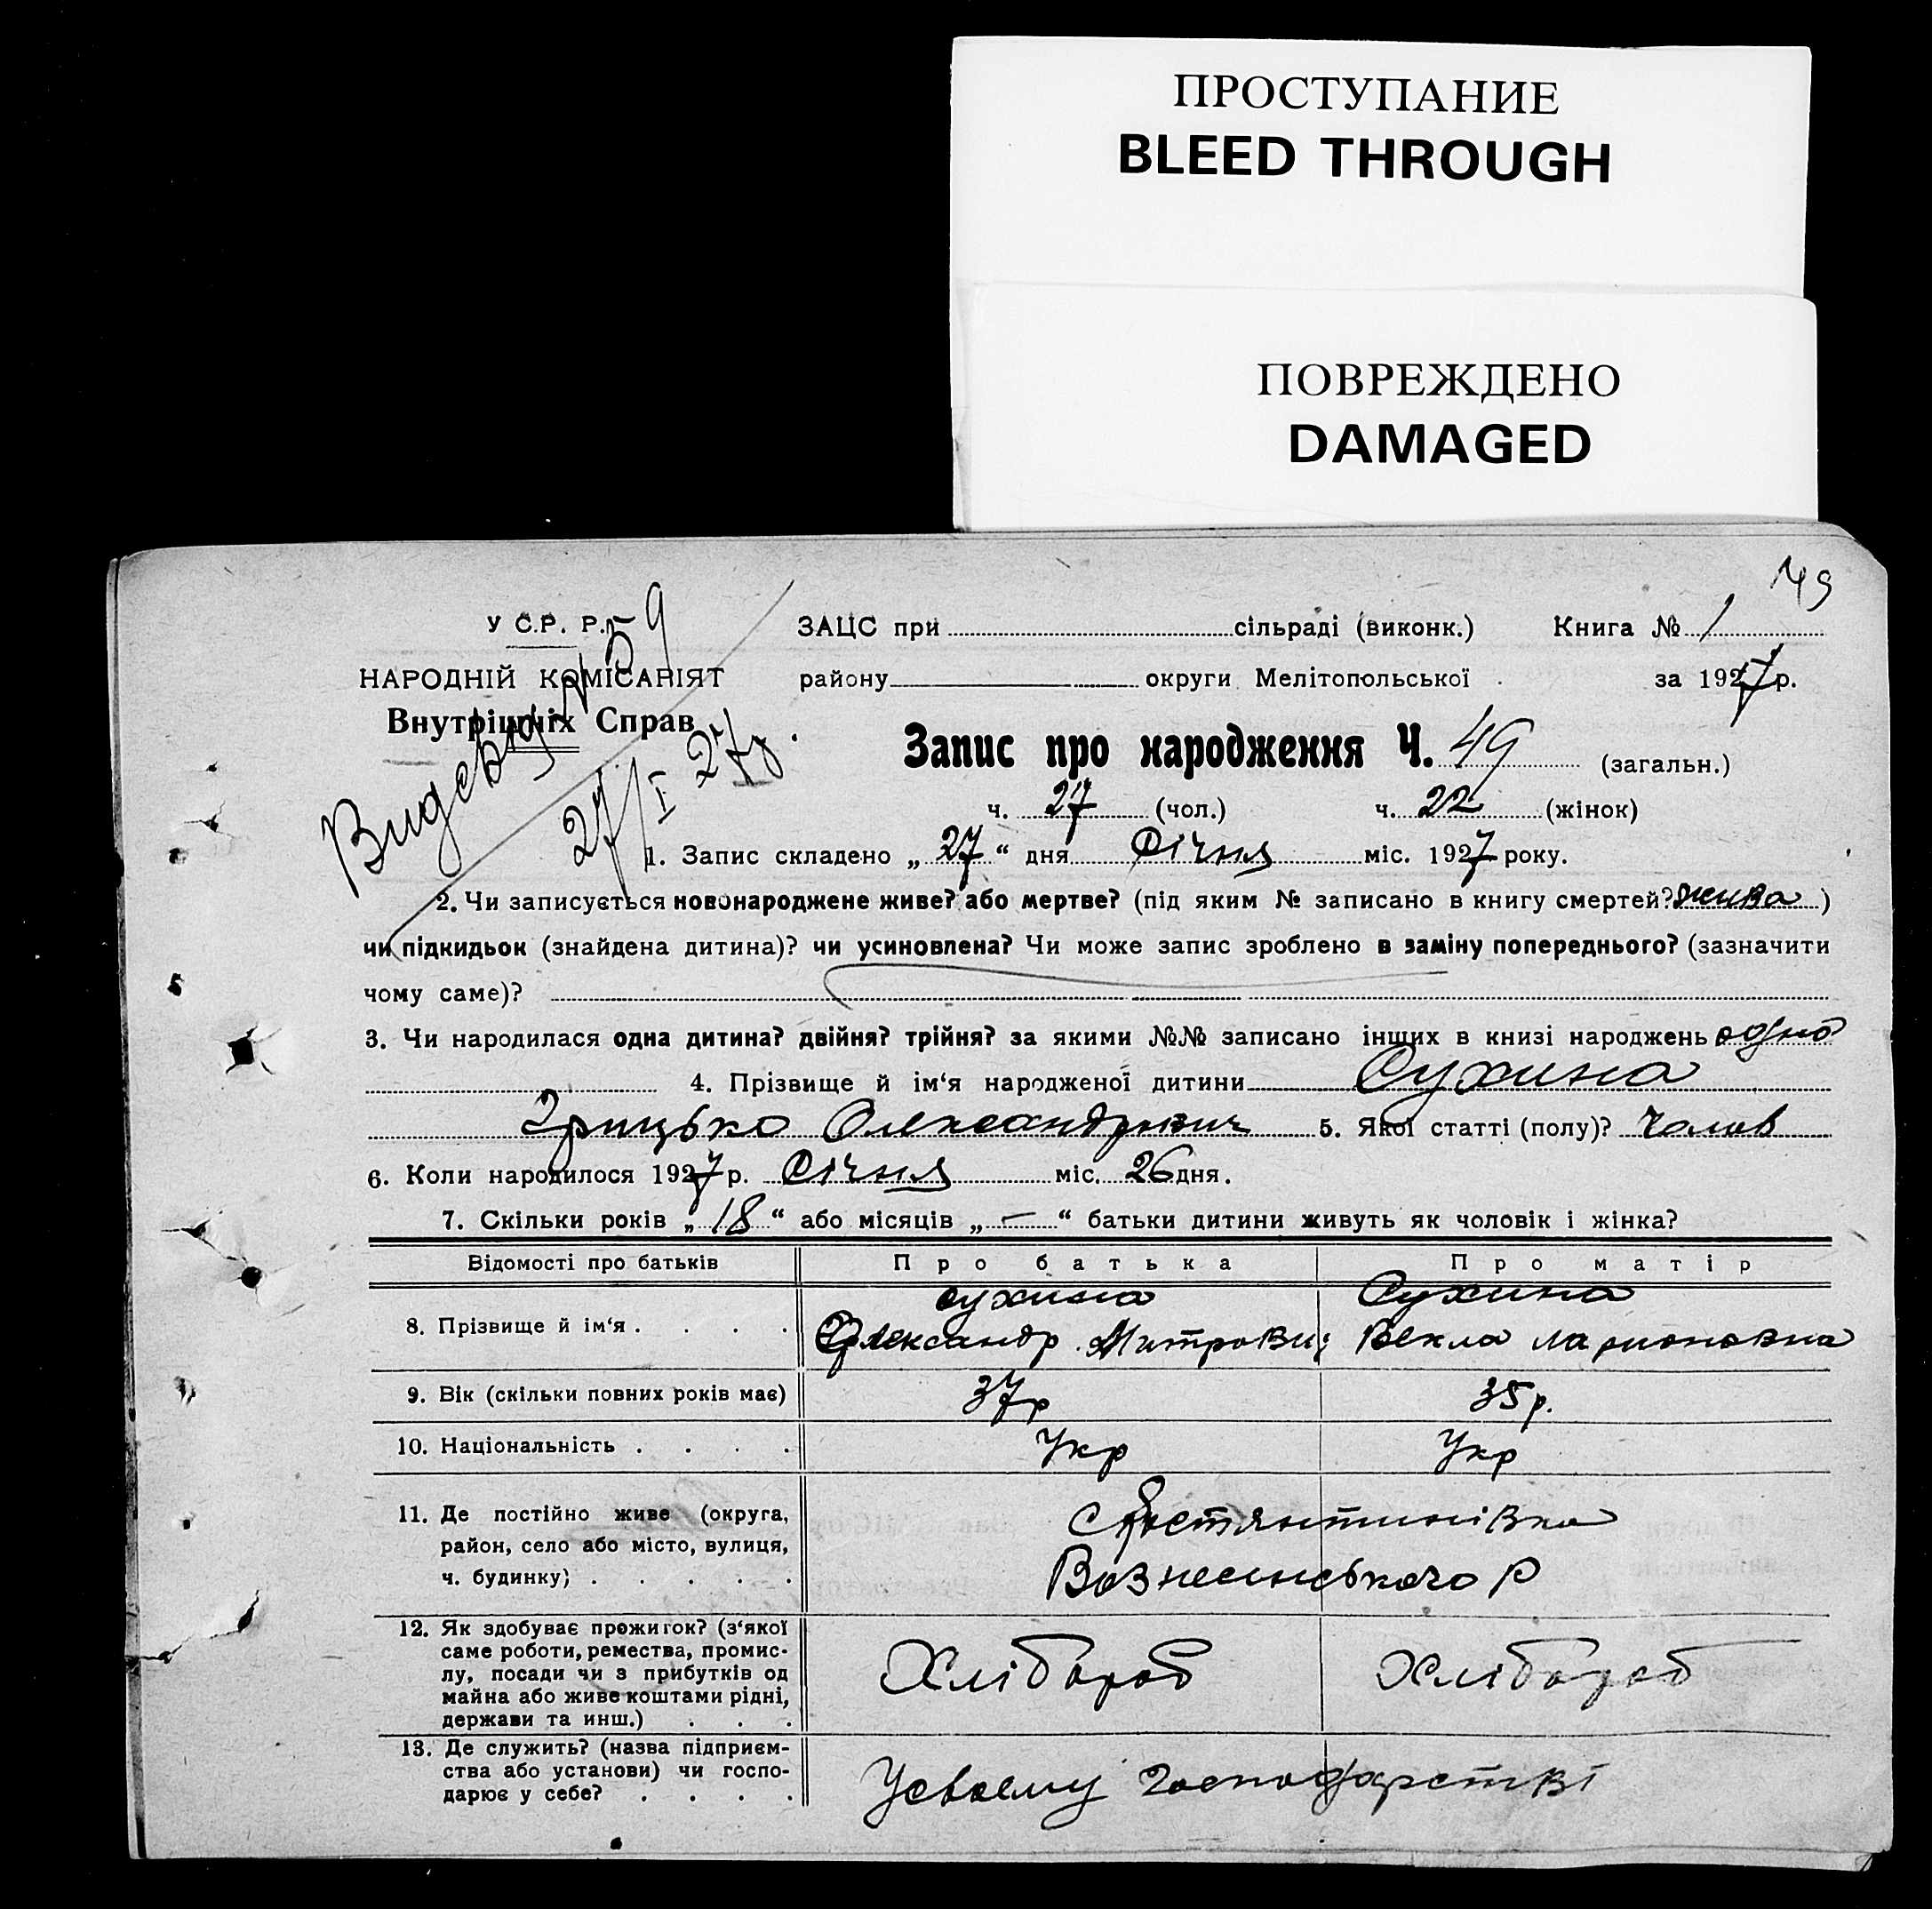 ПРОСТУПАНИЕ
BLEED THROUGH
ПОВРЕЖДЕНО
DAMAGED
49
У С.Р. Р.
ЗАЦС при сільраді (виконк.) Книга № 1
НАРОДНІЙ КОМІСАРІЯТ
району округи Мелітопольської за 1927 р.
Внутрішніх Справ
№ 59
27/I 27р.
Запис про народження Ч. 49 (загальн.)
ч. 27 (чол.) ч. 22 (жінок)
1. Запис складено „ 27 “ дня Січня міс. 1927 року.
2. Чи записується новонароджене живе? або мертве? (під яким № записано в книгу смертей? жива )
чи підкидьок (знайдена дитина)? чи усиновлена? Чи може запис зроблено в заміну попереднього? (зазначити
чому саме)?
3. Чи народилася одна дитина? двійня? трійня? за якими №№ записано інших в книзі народжень одно
4. Прізвище й ім‘я народженої дитини Сухина
Грицько Олександрович 5. Якої статті (полу)? Чолов
6. Коли народилося 1927 р. Січня міс. 26 дня.
7. Скільки років „ 18 “ або місяців „ — “ батьки дитини живуть як чоловік і жінка?
Відомості про батьків Про батька Про матір
8. Прізвище й ім‘я . . . . Сухина Олександр Митрови Сухина Векла Ларионовна
9. Вік (скільки повних років має) 37р 35р.
10. Національність . . . . Укр Укр
11. Де постійно живе (округа,
район, село або місто, вулиця,
ч. будинку) . . . . .
Вознесинського Р
12. Як здобуває прожиток? (з‘якої
саме роботи, ремества, промис-
лу, посади чи з прибутків од
майна або живе коштами рідні,
держави та инш.) . . .
Хлібороб Хлібороб
13. Де служить? (назва підприєм-
ства або установи) чи госпо-
дарює у себе? . . . .
Усвоему господарстві